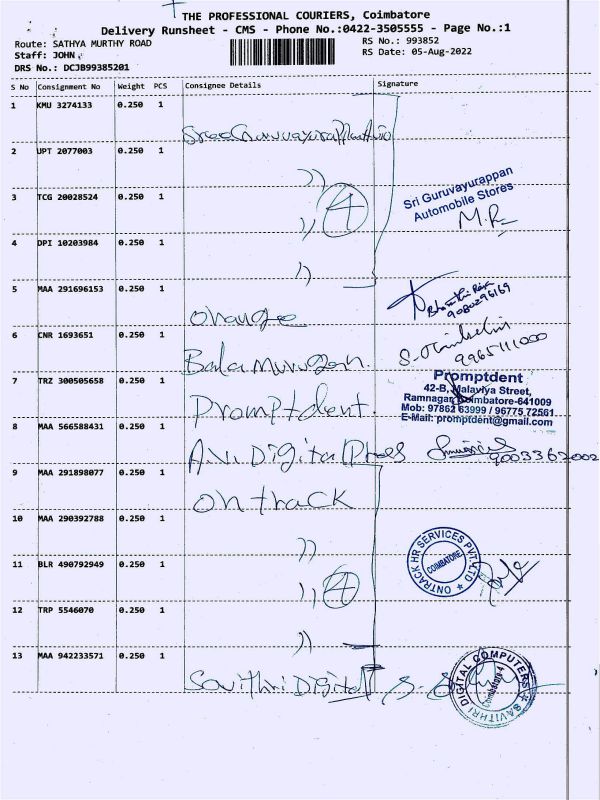 THE PROFESSIONAL COURIERS, Coimbatore
Delivery Runsheet - CMS - Phone No.:0422-3505555 - Page No.:1
Route: SATHYA MURTHY ROAD
Staff: JOHN
DRS No.: DCJB99385201
RS No.: 993852
RS Date: 05-Aug-2022
S No Consignment No Weight PCS Consignee Details Signature
1 KMU 3274133 0.250 1
2 UPT 2077003 0.250 1
3 TCG 20028524 0.250 1
4
Sri Guruvayurappan
Automobile Stores
M.R
4 DPI 10203984 0.250 1
5 MAA 291696153 0.250 1 Orange
9080296169
6 CNR 1693651 0.250 1 Bala Murugan
9965111000
7 TRZ 300505658 0.250 1 Promptdent.
Promptdent
42-B, Malaviya Street,
Ramnagar, Coimbatore-641009
Mob: 97862 63999 / 96775 72561
E-Mail: promptdent@gmail.com
8 MAA 566588431 0.250 1 A.V. Digital
9003362002
9 MAA 291898077 0.250 1 on track
10 MAA 290392788 0.250 1
11 BLR 490792949 0.250 1
4
ONTRACK HR SERVICES PVT. LTD
COIMBATORE
12 TRP 5546070 0.250 1
13 MAA 942233571 0.250 1 Savithri Digital
SAVITHRI DIGITAL COMPUTERS
Coimbatore-4